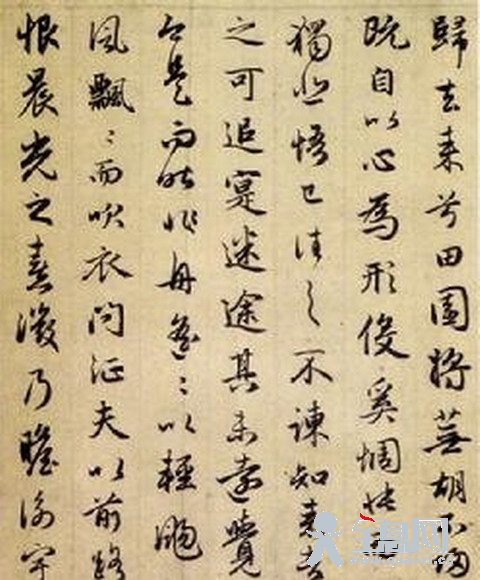 歸去来兮田園將蕪胡不歸
既自以心為形役奚惆悵而
獨悲悟已往之不諫知来者
之可追寔迷途其未遠覺
今是而昨非舟遥〻以輕颺
風飄〻而吹衣問征夫以前路
恨晨光之熹微乃瞻衡宇